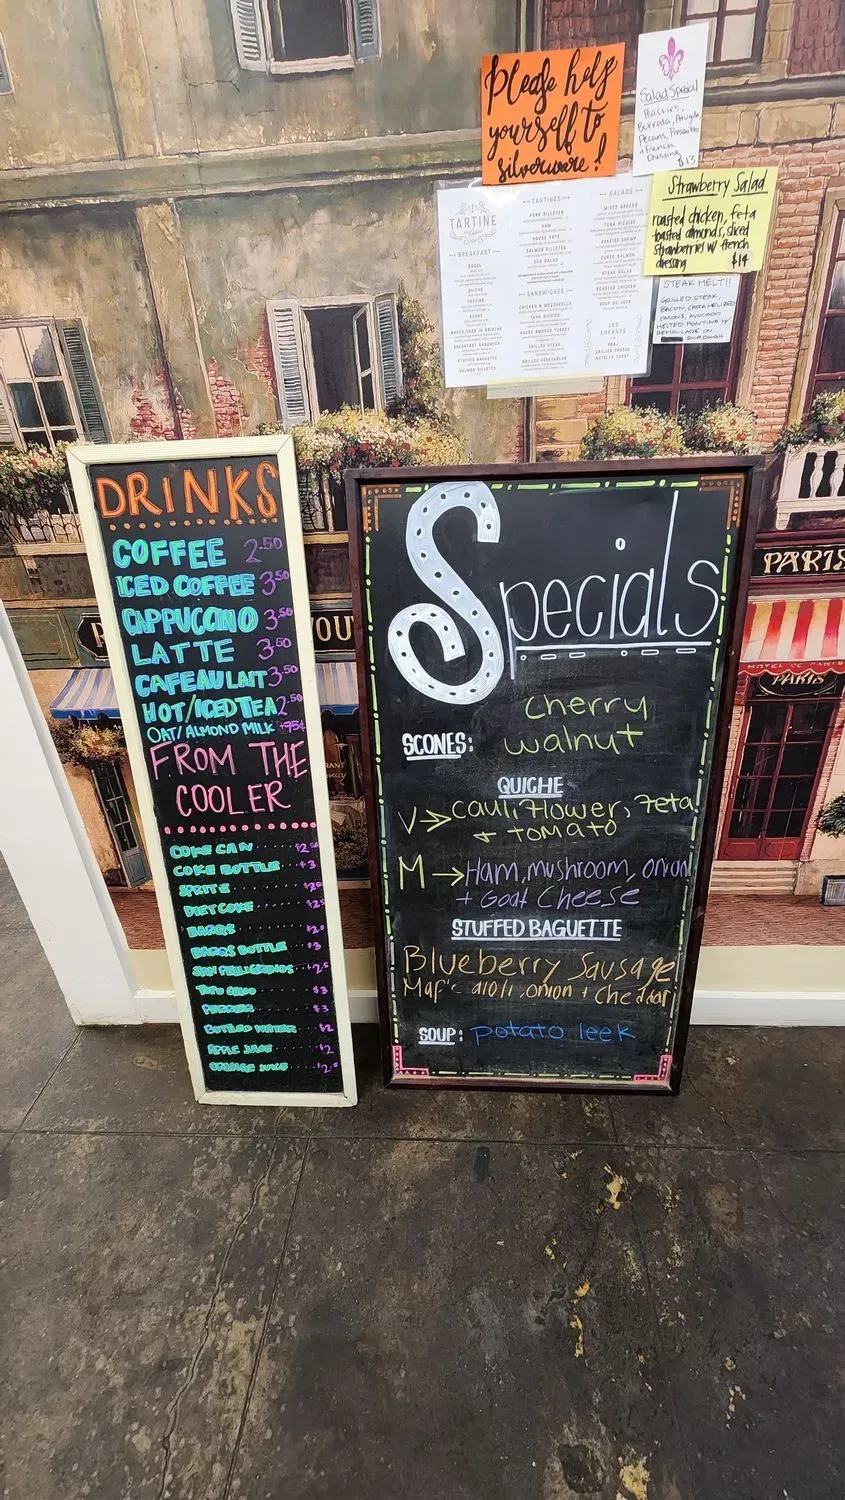 Please help
yourself to
silverware!
Salad Special
Peaches,
Burrata, Arugula
Pecans, Prosciutto
+ French
Dressing
$13
Strawberry Salad
roasted chicken, feta
toasted almonds, sliced
strawberries w/ french
dressing $14
STEAK MELT!!
GRILLED STEAK,
BACON, CARAMELIZED
ONIONS, AVOCADO
MELTED FONTINA W/
REMOULADE ON
SOURDOUGH
TARTINE
BREAKFAST
BAGEL
QUICHE
TARTINE
SCONE
BAKED EGGS IN BRIOCHE
BREAKFAST SANDWICH
STUFFED BAGUETTE
SALMON RILLETTES
TARTINES
PORK RILLETTES
HAM
HOUSE PATE
SALMON RILLETTES
EGG SALAD
SANDWICHES
CHICKEN & MOZZARELLA
TUNA NICOISE
HOUSE SMOKED TURKEY
GRILLED STEAK
GRILLED VEGETABLES
SALADS
MIXED GREENS
TUNA NICOISE
ROASTED SHRIMP
CURED SALMON
STEAK SALAD
ROASTED CHICKEN
SOUP DU JOUR
LES
ENFANTS
PB&J
GRILLED CHEESE
NUTELLA TOAST
DRINKS
COFFEE 2.50
ICED COFFEE 3.50
CAPPUCCINO 3.50
LATTE 3.50
CAFE AU LAIT 3.50
HOT/ICED TEA 2.50
OAT/ALMOND MILK +75¢
FROM THE
COOLER
COKE CAN $2.50
COKE BOTTLE $3
SPRITE
DIET COKE
BARQS
BARQS BOTTLE $3
SAN PELLEGRINOS
TOPO CHICO $3
$3
BOTTLED WATER $2
APPLE JUICE $2
ORANGE JUICE
Specials
SCONES: cherry
walnut
QUICHE
V → cauliflower, feta
+ tomato
M → Ham, mushroom, onion
+ Goat Cheese
STUFFED BAGUETTE
Blueberry Sausage
Maple aioli, onion + cheddar
SOUP: potato leek
PARIS
HOTEL DE PARIS
PARIS
VOU